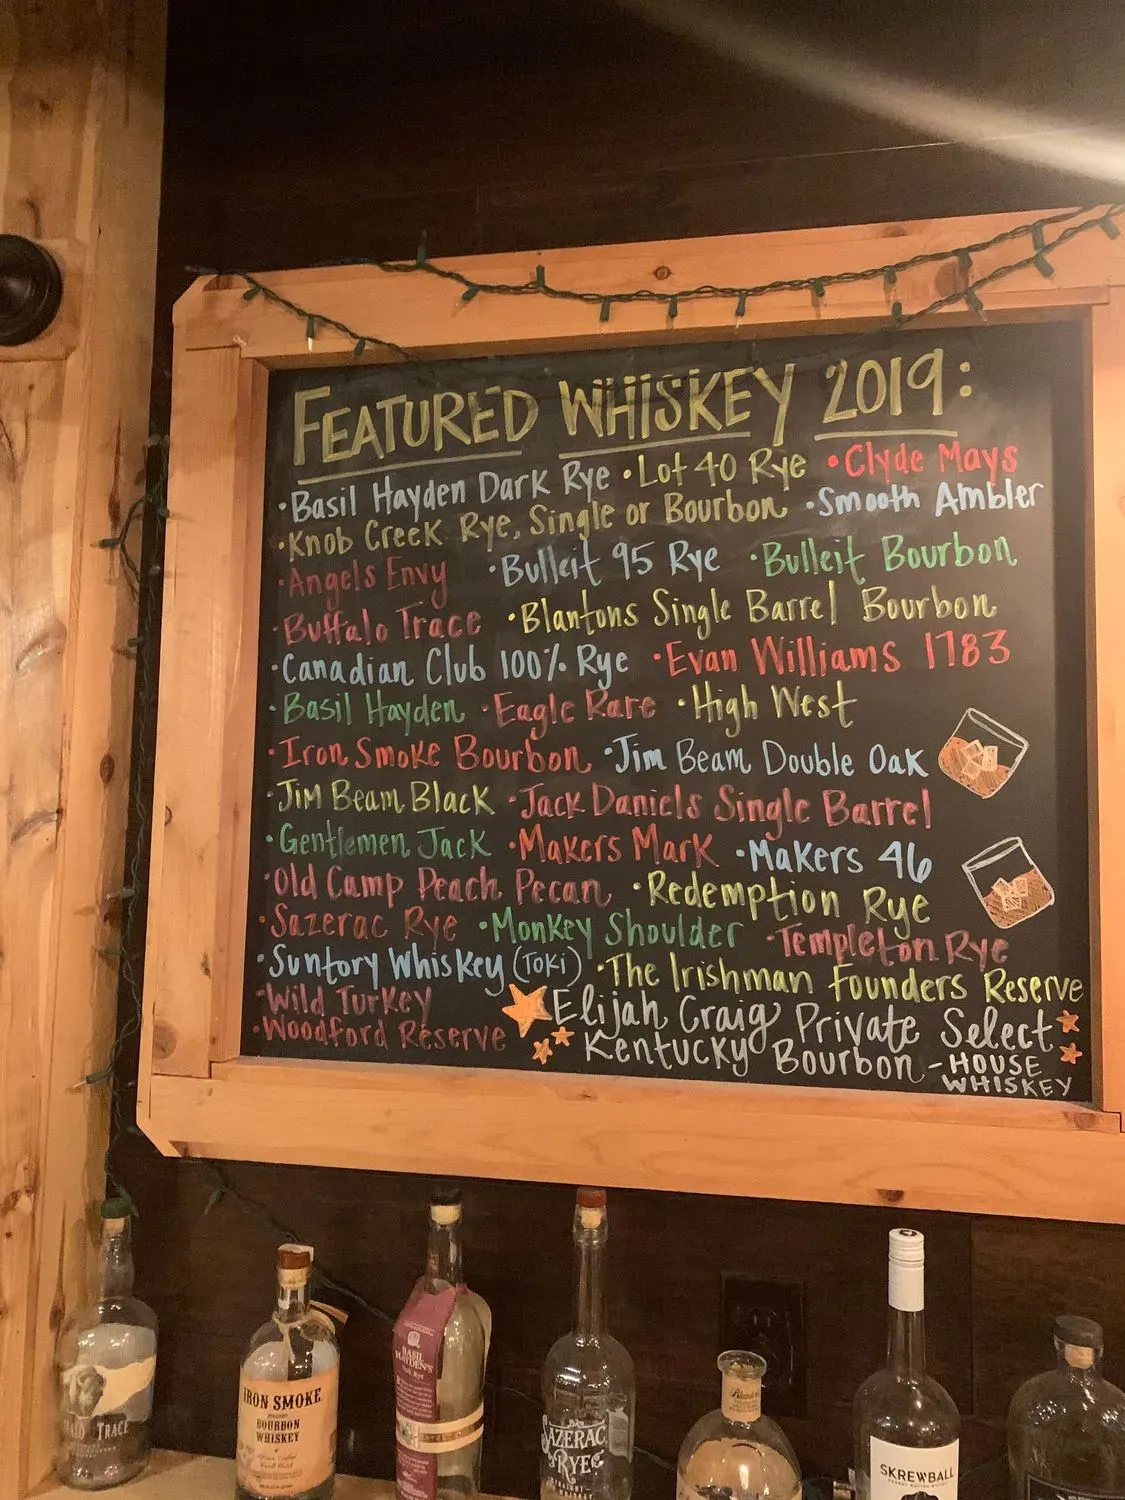 FEATURED WHISKEY 2019:
•Basil Hayden Dark Rye •Lot 40 Rye •Clyde Mays
•Knob Creek Rye, Single or Bourbon •Smooth Ambler
•Angels Envy •Bulleit 95 Rye •Bulleit Bourbon
•Buffalo Trace •Blantons Single Barrel Bourbon
•Canadian Club 100% Rye •Evan Williams 1783
•Basil Hayden •Eagle Rare •High West
•Iron Smoke Bourbon •Jim Beam Double Oak
•Jim Beam Black •Jack Daniels Single Barrel
•Gentlemen Jack •Makers Mark •Makers 46
•Old Camp Peach Pecan •Redemption Rye
•Sazerac Rye •Monkey Shoulder •Templeton Rye
•Suntory Whiskey (Toki) •The Irishman Founders Reserve
•Wild Turkey Elijah Craig Private Select
•Woodford Reserve Kentucky Bourbon - HOUSE
WHISKEY
TRACE
IRON SMOKE
STRAIGHT
BOURBON
WHISKEY
BASIL
HAYDEN'S
Dark Rye
SAZERAC
RYE
STRAIGHT
Blanton's
SKREWBALL
PEANUT BUTTER WHISKEY